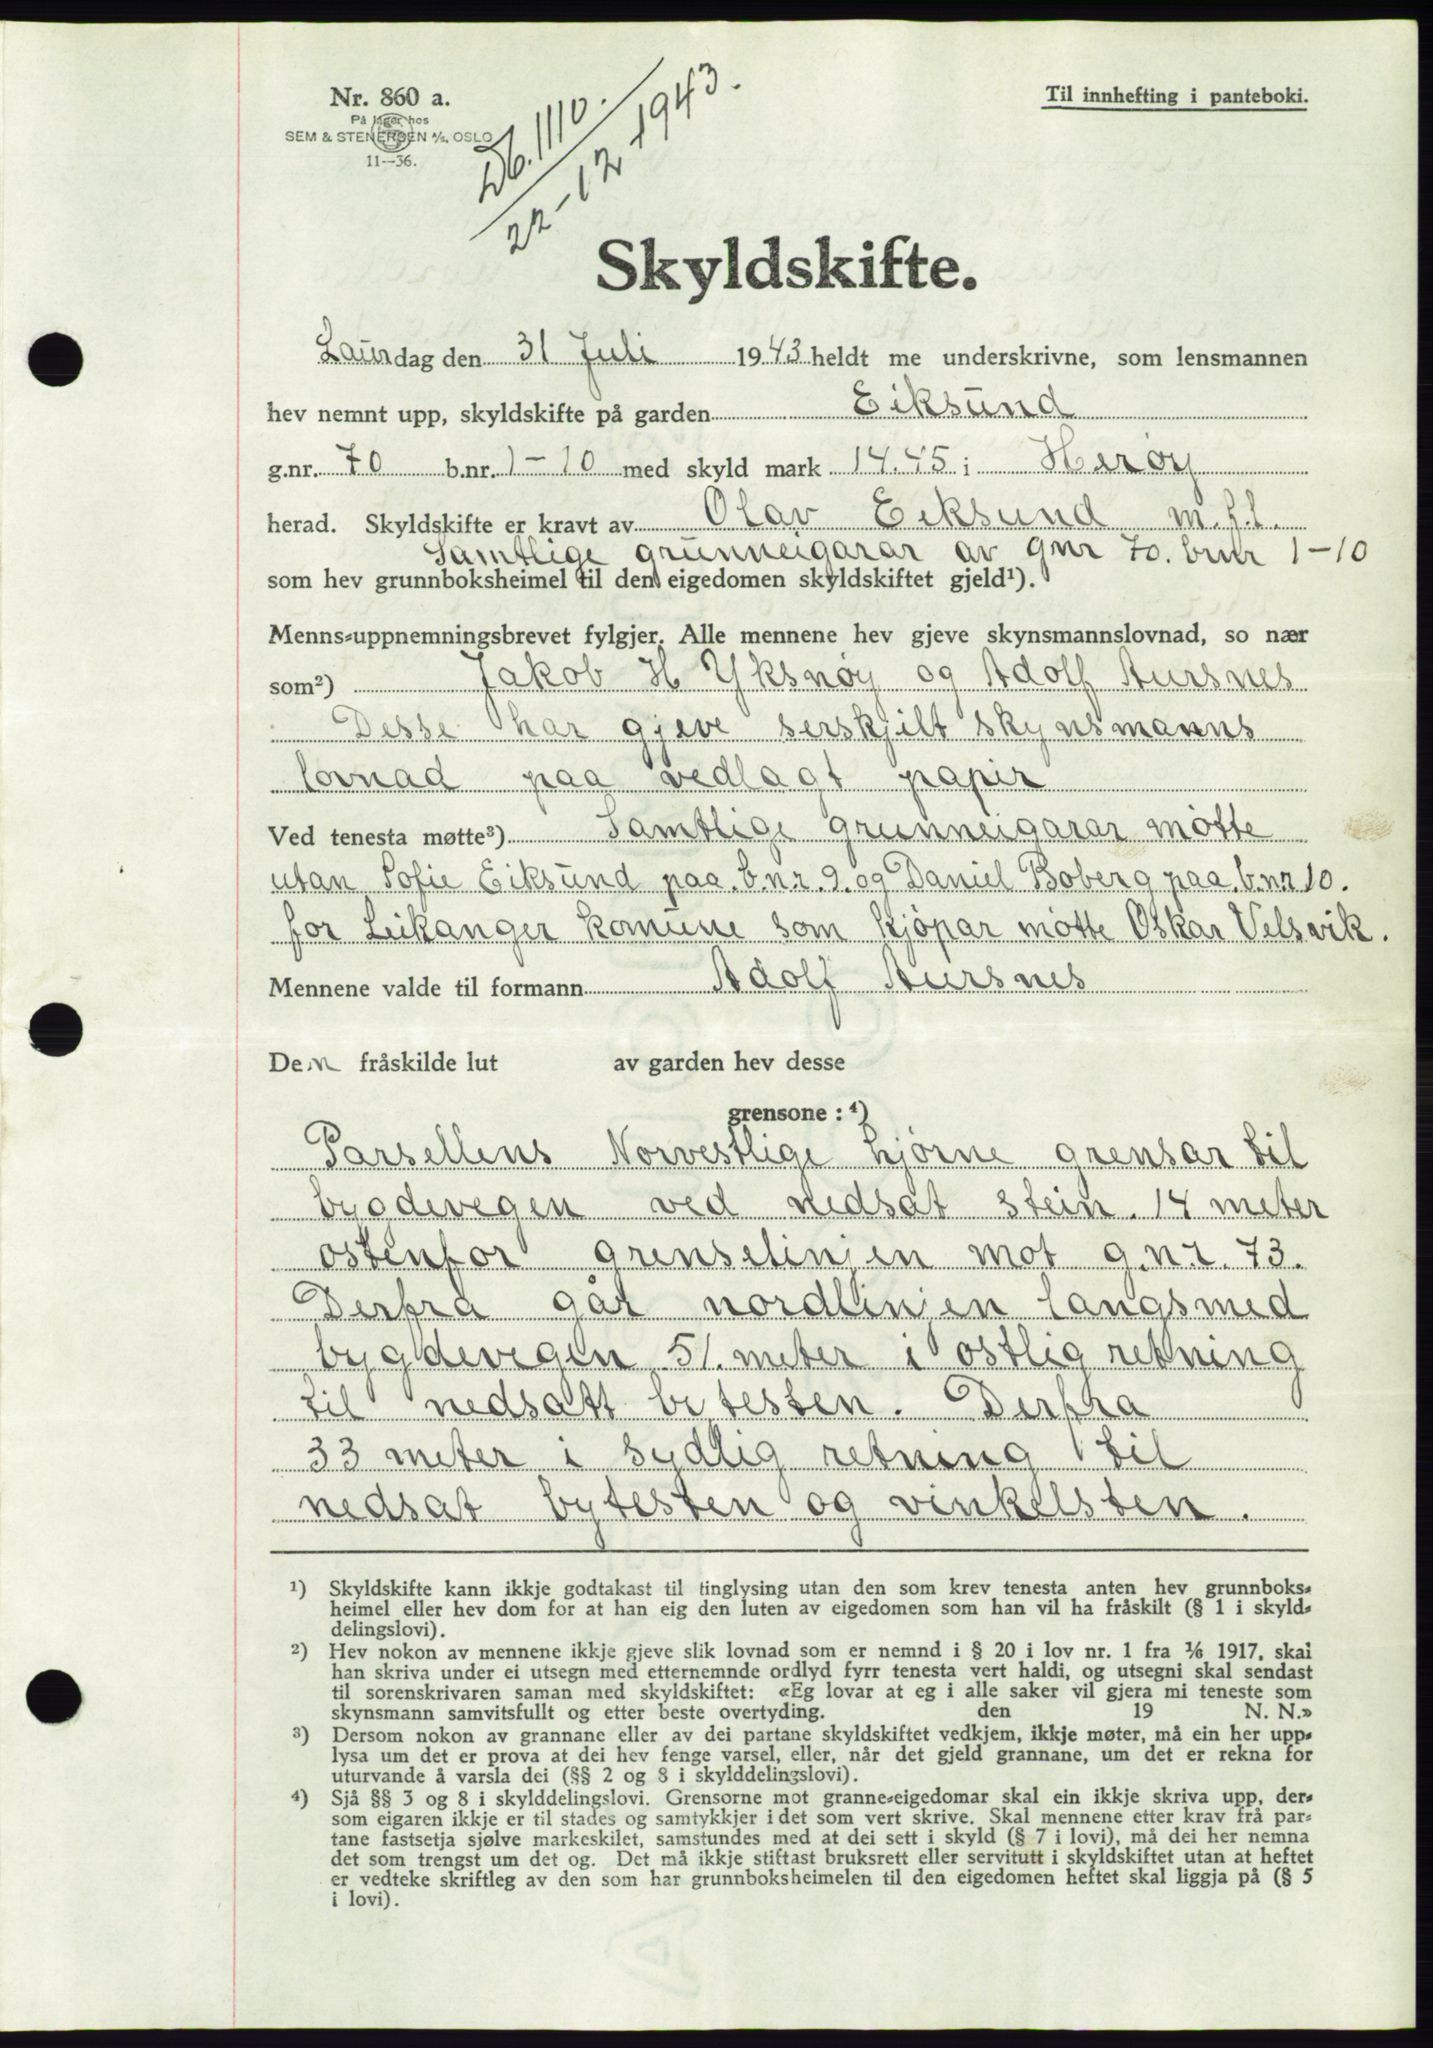 Nr. 860 a.
På lager hos
SEM & STENERSEN A/S. OSLO
11—36.
Db. 1110.
22-12-1943.
Til innhefting i panteboki.
Skyldskifte.
Laurdag den 31 Juli 1943 heldt me underskrivne, som lensmannen
hev nemnt upp, skyldskifte på garden Eiksund
g.nr. 70 b.nr. 1-10 med skyld mark 14.45 i Herøy
herad. Skyldskifte er kravt av Olav Eiksund m.f.l.
Samtlige grunneigarar av gnr 70. bnr 1-10
som hev grunnboksheimel til den eigedomen skyldskiftet gjeld¹).
Menns-uppnemningsbrevet fylgjer. Alle mennene hev gjeve skynsmannslovnad, so nær
som²) Jakob H Yksnøy og Adolf Aursnes
Desse har gjeve serskjilt skynsmanns
lovnad paa vedlagt papir
Ved tenesta møtte³) Samtlige grunneigarar møtte
utan Sofie Eiksund paa b.n.r. 9. og Daniel Boberg paa b.nr 10.
for Leikanger komune som kjøpar møtte Oskar Velsvik.
Mennene valde til formann Adolf Aursnes
Den fråskilde lut av garden hev desse
grensone : ⁴)
Parsellens Norvestlige hjørne grensar til
bygdevegen ved nedsat stein 14 meter
østenfor grenselinjen mot g.n.r. 73.
Derfra går nordlinjen langsmed
bygdevegen 51. meter i østlig retning
til nedsatt bytesten. Derfra
33 meter i sydlig retning til
nedsat bytesten og vinkelsten.
¹) Skyldskifte kann ikkje godtakast til tinglysing utan den som krev tenesta anten hev grunnboks-
heimel eller hev dom for at han eig den luten av eigedomen som han vil ha fråskilt (§ 1 i skyld-
delingslovi).
²) Hev nokon av mennene ikkje gjeve slik lovnad som er nemnd i § 20 i lov nr. 1 fra 1/6 1917, skal
han skriva under ei utsegn med etternemnde ordlyd fyrr tenesta vert haldi, og utsegni skal sendast
til sorenskrivaren saman med skyldskiftet: «Eg lovar at eg i alle saker vil gjera mi teneste som
skynsmann samvitsfullt og etter beste overtyding. den 19 N. N.»
³) Dersom nokon av grannane eller av dei partane skyldskiftet vedkjem, ikkje møter, må ein her upp-
lysa um det er prova at dei hev fenge varsel, eller, når det gjeld grannane, um det er rekna for
uturvande å varsla dei (§§ 2 og 8 i skylddelingslovi).
⁴) Sjå §§ 3 og 8 i skylddelingslovi. Grensorne mot granne-eigedomar skal ein ikkje skriva upp, der-
som eigaren ikkje er til stades og samtykkjer i det som vert skrive. Skal mennene etter krav frå par-
tane fastsetja sjølve markeskilet, samstundes med at dei sett i skyld (§ 7 i lovi), må dei her nemna
det som trengst um det og. Det må ikkje stiftast bruksrett eller servitutt i skyldskiftet utan at heftet
er vedteke skriftleg av den som har grunnboksheimelen til den eigedomen heftet skal liggja på (§ 5
i lovi).